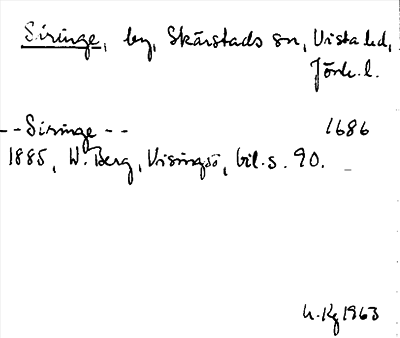 Siringe, by, Skärstads sn, Vista hd,
Jönk. l.
--Siringe-- 1686
1885, W. Berg, Visingsö, bil. s. 90.
h. Kg 1963